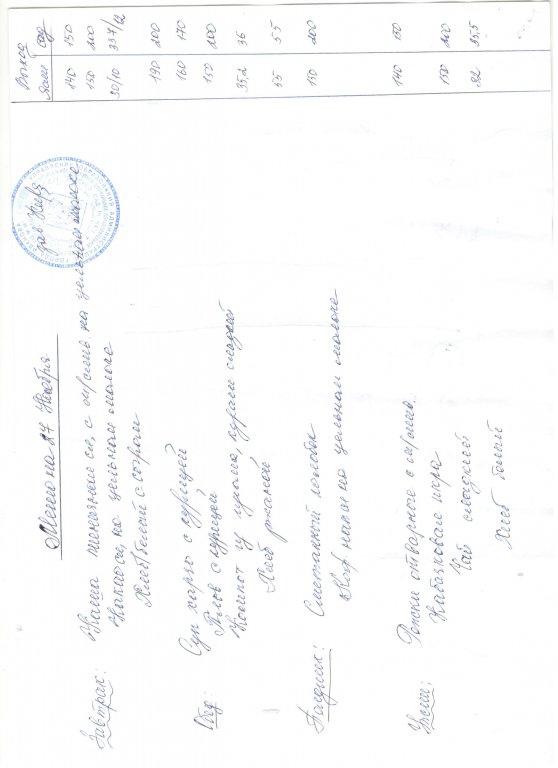 Меню на 27 Ноября
Выход
Ясли сад
Завтрак: Каша пшеничная сл. с м/слив на цельном молоке 140 150
Какао сл. на цельном молоке 150 200
Хлеб белый с сыром 30/10 337/12
Обед: Суп харчо с курицей 190 200
Плов с курицей 160 170
Компот из изюма, кураги сладкий 150 200
Хлеб ржаной 35,2 36
55 55
Полдник: Сметанный
Коф. напиток на цельном молоке 150 200
Ужин: Рожки отварные с м/слив. 140 150
Кабачковая икра
Чай сладкий 150 200
Хлеб белый 22 25,5